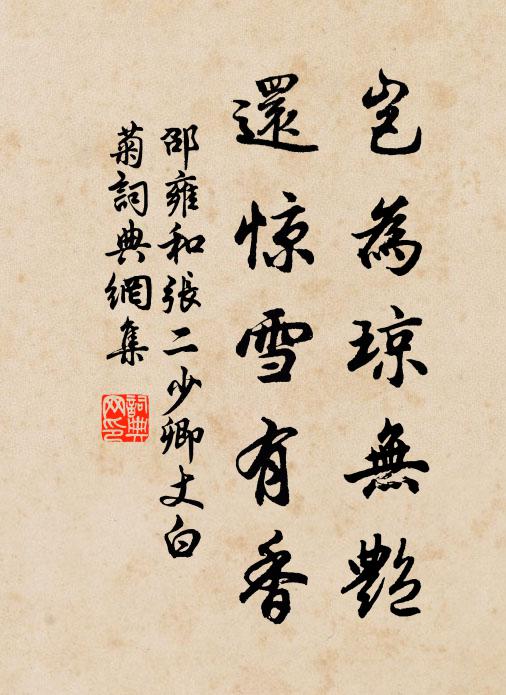 岂為琼無艷
還惊雪有香
邵雍和張二少卿丈白
菊詞典網集
詞典
网印